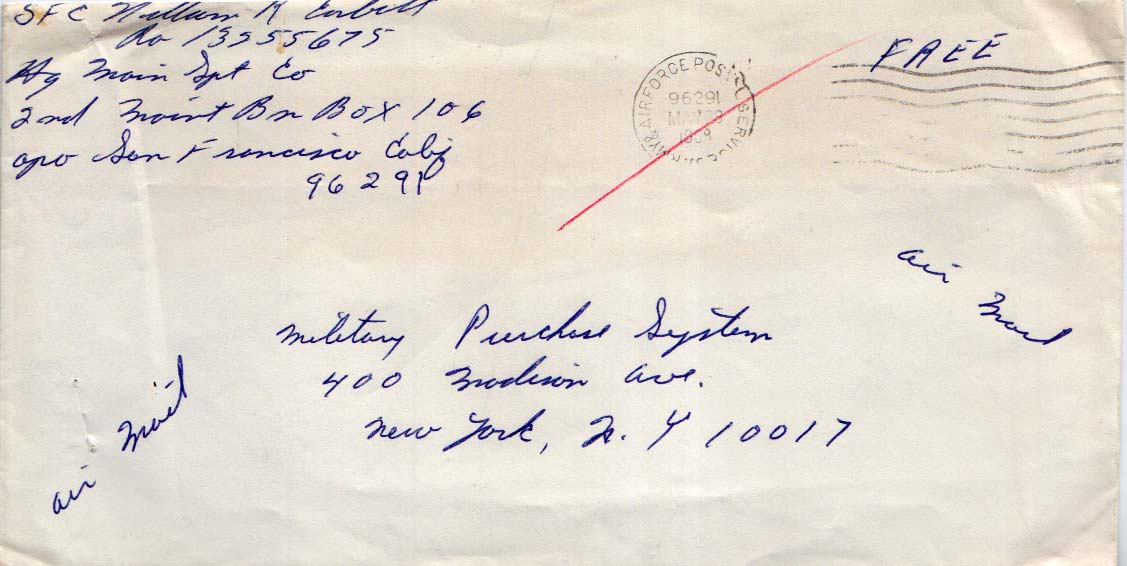 SFC William R Corbett
Ra 13255675
Hq Main Spt Co
2nd Maint Bn Box 106
apo San Francisco Calif
96291
FREE
ARMY & AIR FORCE POSTAL SERVICE
96291
MAY
air Mail
Military Purchase System
400 Madison ave.
New York, N. Y 10017
air Mail